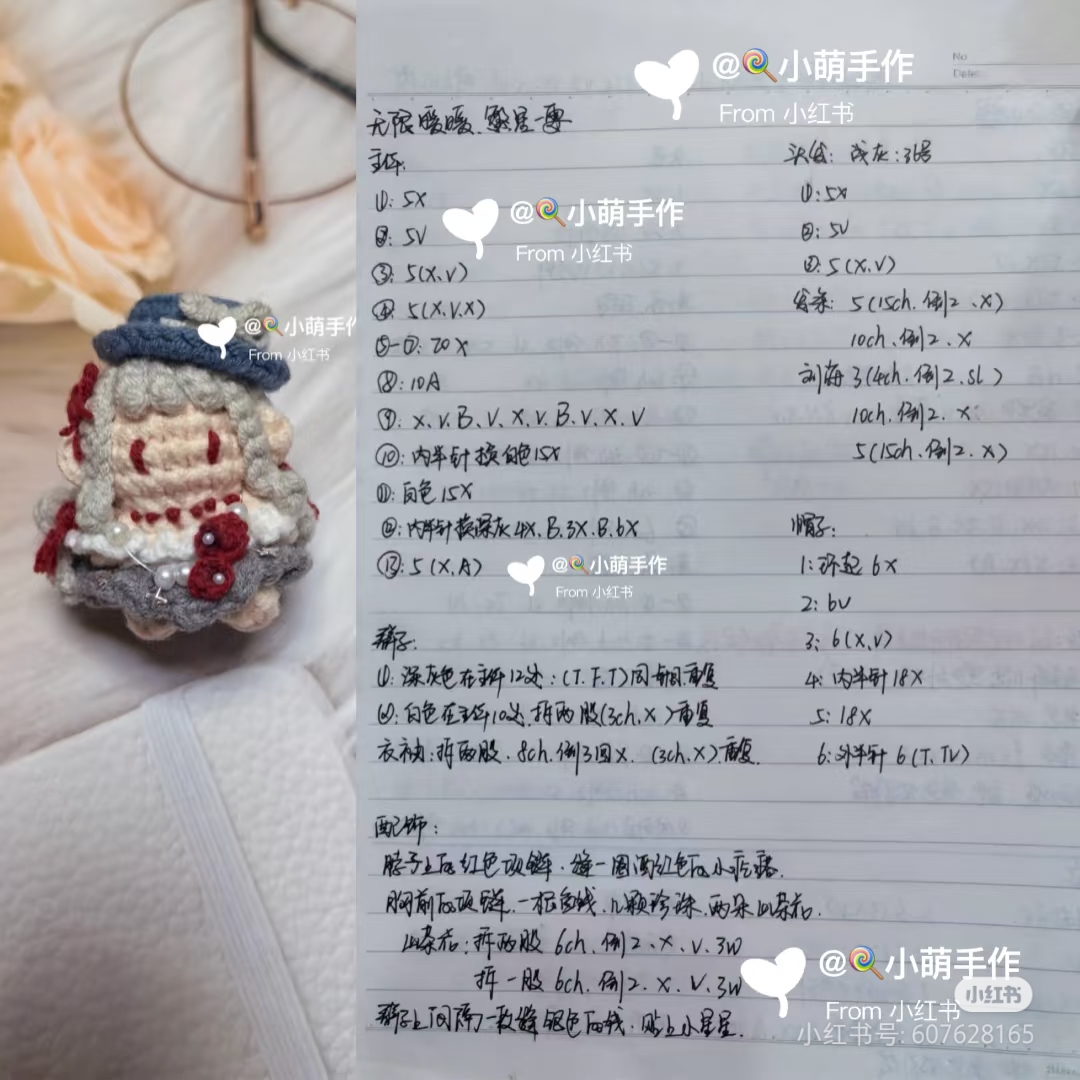 @🍭小萌手作
From 小红书
No
Date
无限暖暖、繁星一霎
主体:
①: 5X
②: 5V
③: 5(X、V)
④: 5(X.V.X)
⑤-⑦: 20X
⑧: 10A
⑨: X、V、B、V、X、V、B、V、X、V
⑩: 内半针换白色15X
⑪: 白色15X
⑫: 内半针换深灰4X、B、3X、B、6X
⑬: 5(X、A)
裙子:
①: 深灰色在主体12处:(T、F、T)同针目重复
②: 白色在主体10处、拆两股(3ch、X)重复
衣袖: 拆两股、8ch、倒3回X、(3ch、X)重复.
配饰:
脖子上的红色项链、缝一圈酒红色的小疙瘩.
胸前的项链、一根鱼线、几颗珍珠、两朵山茶花.
山茶花: 拆两股 6ch、倒2、X、V、3W
拆一股 6ch、倒2、X、V、3W
裙子上间隔一段缝银色的线、贴上小星星.
头发: 浅灰: 36号
①: 5X
②: 5V
③: 5(X、V)
发条: 5(15ch、倒2、X)
10ch、倒2、X
刘海 3(4ch、倒2、sl)
10ch、倒2、X
5(15ch、倒2、X)
帽子:
1: 环起 6X
2: 6V
3: 6(X、V)
4: 内半针18X
5: 18X
6: 外半针 6(T、TV)
@🍭小萌手作
From 小红书
@🍭小萌手作
From 小红书
@🍭小萌手作
From 小红书
@🍭小萌手作
From 小红书
小红书
小红书号: 607628165